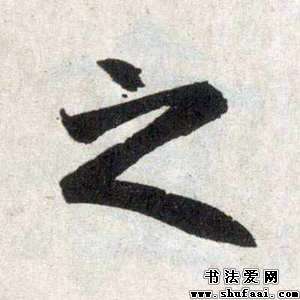 之
书法爱网
www.shufaai.com